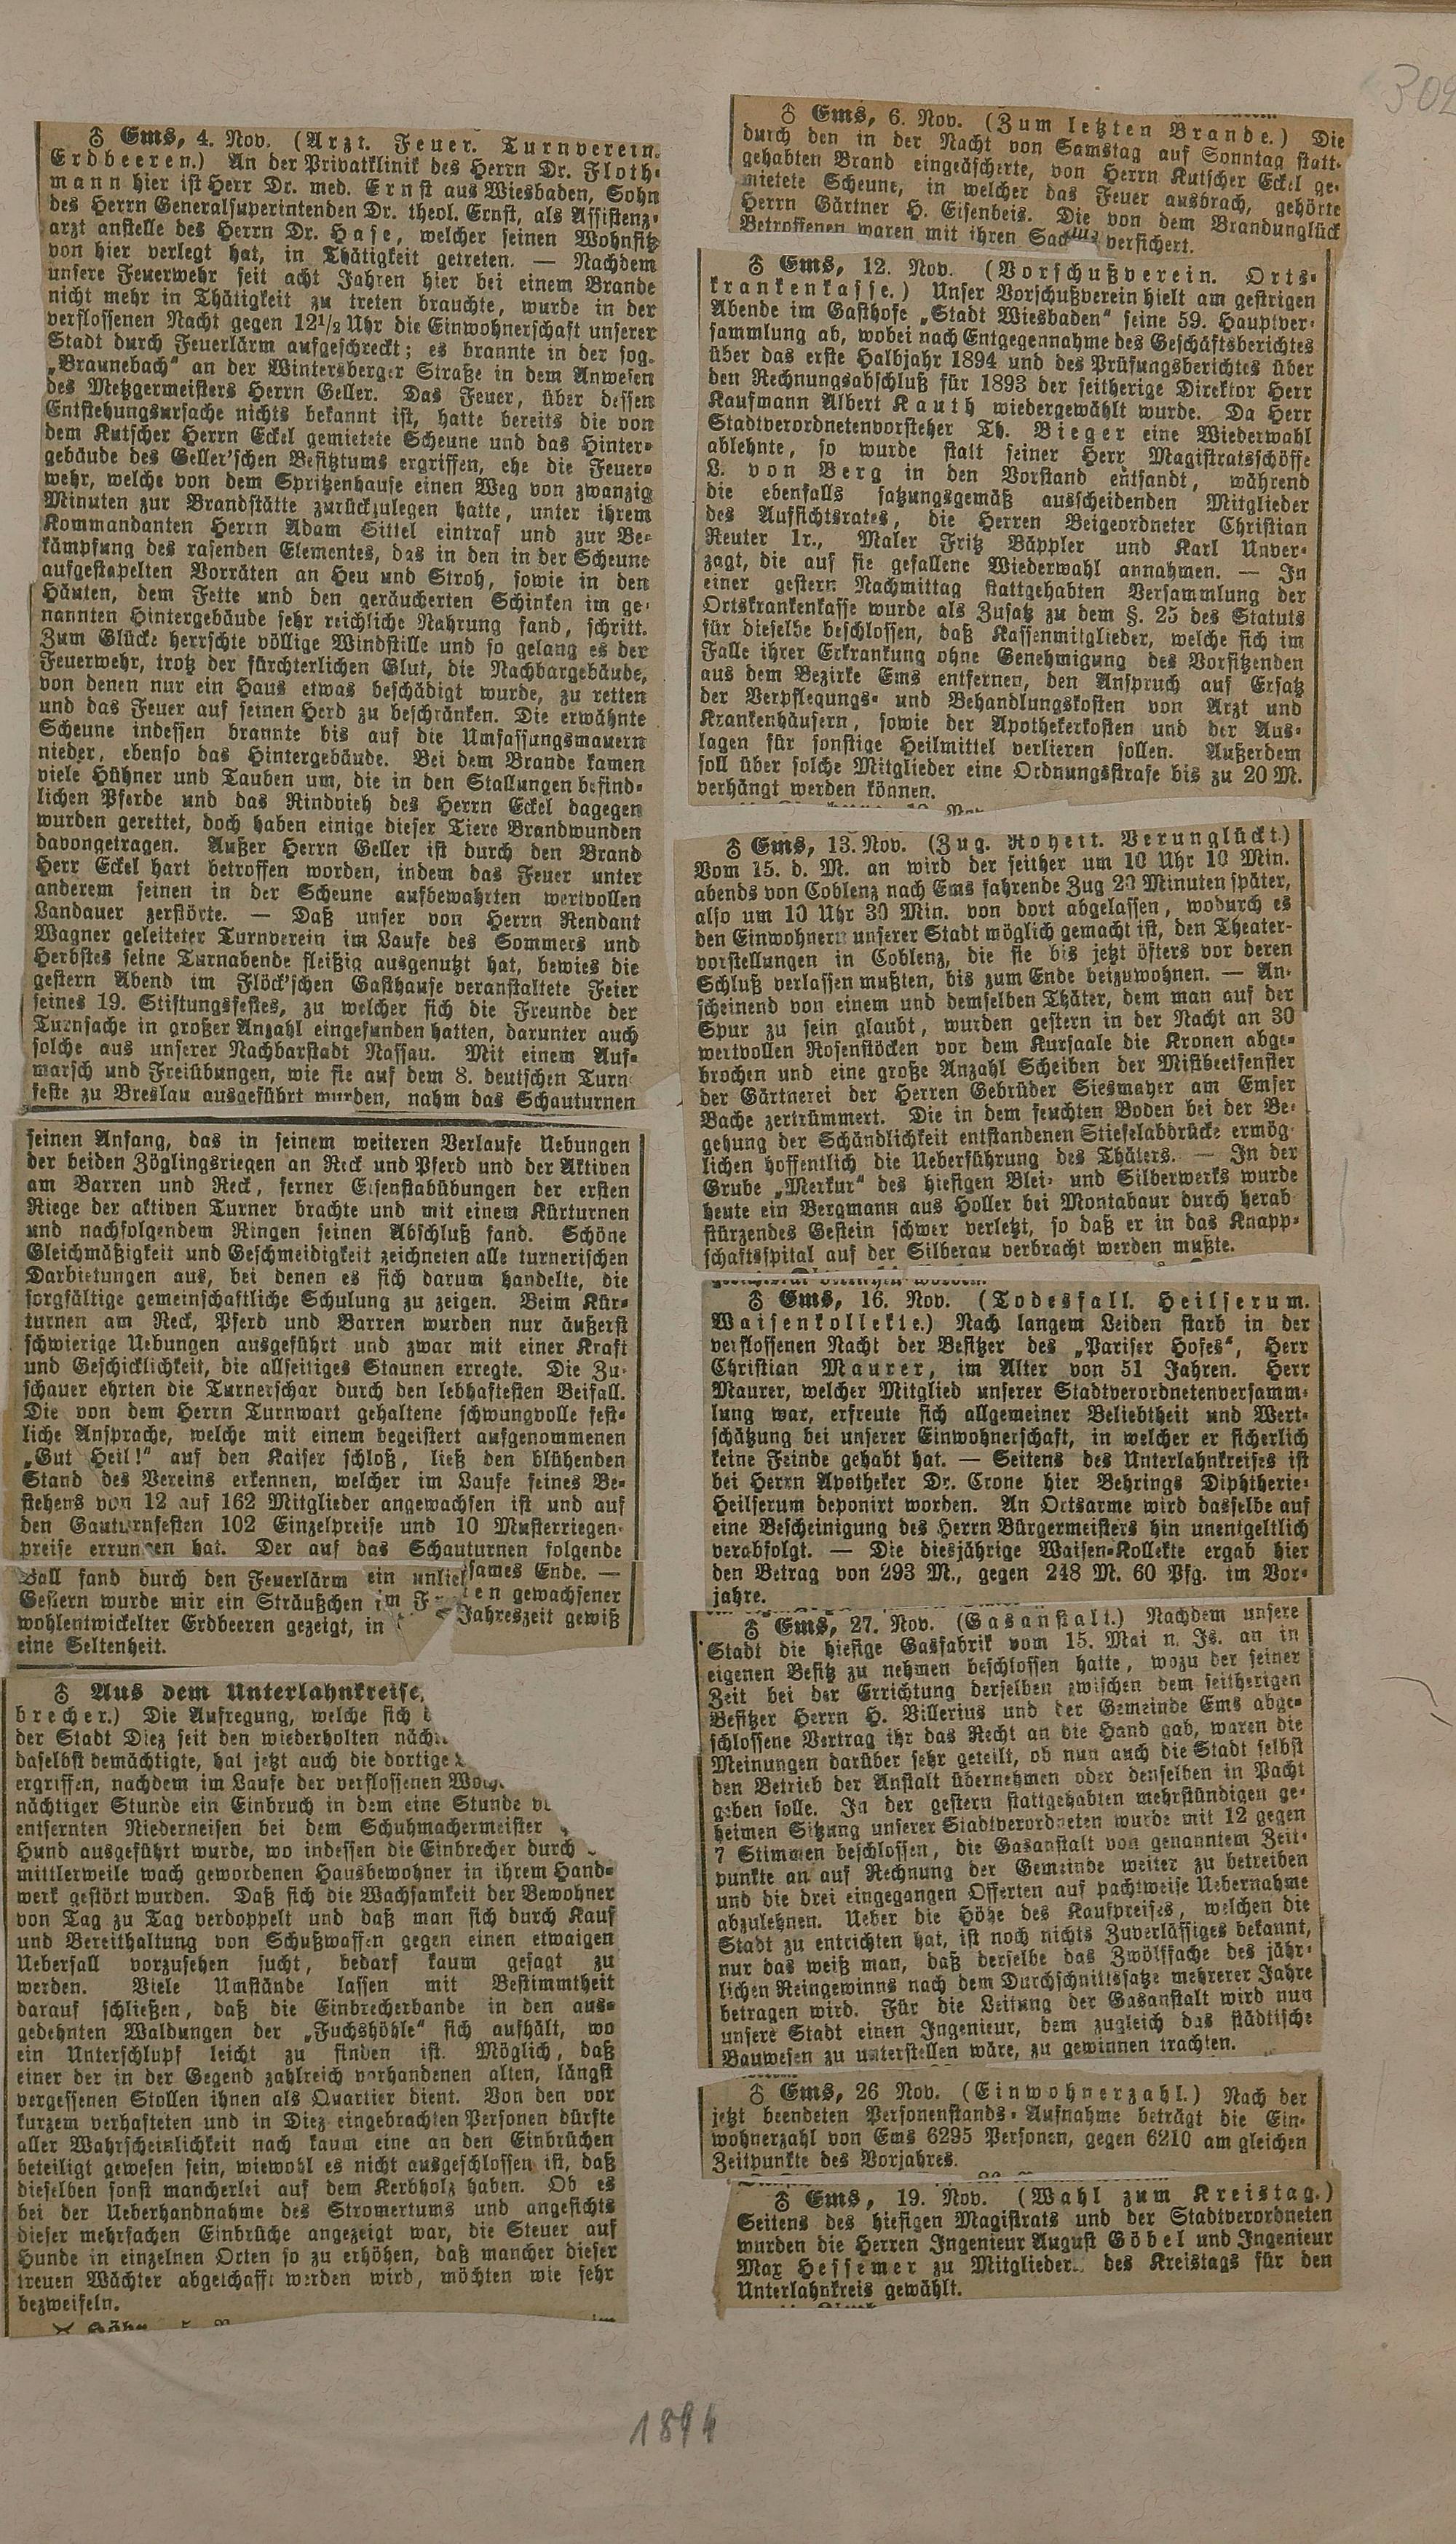 ♁ Ems, 4. Nov. (Arzt. Feuer. Turnverein.
Erdbeeren.) An der Privatklinik des Herrn Dr. Floth-
mann hier ist Herr Dr. med. Ernst aus Wiesbaden, Sohn
des Herrn Generalsuperintenden Dr. theol. Ernst, als Assistenz-
arzt anstelle des Herrn Dr. Hase, welcher seinen Wohnsitz
von hier verlegt hat, in Thätigkeit getreten. — Nachdem
unsere Feuerwehr seit acht Jahren hier bei einem Brande
nicht mehr in Thätigkeit zu treten brauchte, wurde in der
verflossenen Nacht gegen 12½ Uhr die Einwohnerschaft unserer
Stadt durch Feuerlärm aufgeschreckt; es brannte in der sog.
„Braunebach“ an der Wintersberger Straße in dem Anwesen
des Metzgermeisters Herrn Geller. Das Feuer, über dessen
Entstehungsursache nichts bekannt ist, hatte bereits die von
dem Kutscher Herrn Eckel gemietete Scheune und das Hinter-
gebäude des Geller'schen Besitztums ergriffen, ehe die Feuer-
wehr, welche von dem Spritzenhause einen Weg von zwanzig
Minuten zur Brandstätte zurückzulegen hatte, unter ihrem
Kommandanten Herrn Adam Sittel eintraf und zur Be-
kämpfung des rasenden Elementes, das in den in der Scheune
aufgestapelten Vorräten an Heu und Stroh, sowie in den
Häuten, dem Fette und den geräucherten Schinken im ge-
nannten Hintergebäude sehr reichliche Nahrung fand, schritt.
Zum Glücke herrschte völlige Windstille und so gelang es der
Feuerwehr, trotz der fürchterlichen Glut, die Nachbargebäude,
von denen nur ein Haus etwas beschädigt wurde, zu retten
und das Feuer auf seinen Herd zu beschränken. Die erwähnte
Scheune indessen brannte bis auf die Umfassungsmauern
nieder, ebenso das Hintergebäude. Bei dem Brande kamen
viele Hühner und Tauben um, die in den Stallungen befind-
lichen Pferde und das Rindvieh des Herrn Eckel dagegen
wurden gerettet, doch haben einige dieser Tiere Brandwunden
davongetragen. Außer Herrn Geller ist durch den Brand
Herr Eckel hart betroffen worden, indem das Feuer unter
anderem seinen in der Scheune aufbewahrten wertvollen
Landauer zerstörte. — Daß unser von Herrn Rendant
Wagner geleiteter Turnverein im Laufe des Sommers und
Herbstes seine Turnabende fleißig ausgenutzt hat, bewies die
gestern Abend im Flöck'schen Gasthause veranstaltete Feier
seines 19. Stiftungsfestes, zu welcher sich die Freunde der
Turnsache in großer Anzahl eingefunden hatten, darunter auch
solche aus unserer Nachbarstadt Nassau. Mit einem Auf-
marsch und Freiübungen, wie sie auf dem 8. deutschen Turn-
feste zu Breslau ausgeführt wurden, nahm das Schauturnen
seinen Anfang, das in seinem weiteren Verlaufe Uebungen
der beiden Zöglingsriegen an Reck und Pferd und der Aktiven
am Barren und Reck, ferner Eisenstabübungen der ersten
Riege der aktiven Turner brachte und mit einem Kürturnen
und nachfolgendem Ringen seinen Abschluß fand. Schöne
Gleichmäßigkeit und Geschmeidigkeit zeichneten alle turnerischen
Darbietungen aus, bei denen es sich darum handelte, die
sorgfältige gemeinschaftliche Schulung zu zeigen. Beim Kür-
turnen am Reck, Pferd und Barren wurden nur äußerst
schwierige Uebungen ausgeführt und zwar mit einer Kraft
und Geschicklichkeit, die allseitiges Staunen erregte. Die Zu-
schauer ehrten die Turnerschar durch den lebhaftesten Beifall.
Die von dem Herrn Turnwart gehaltene schwungvolle fest-
liche Ansprache, welche mit einem begeistert aufgenommenen
„Gut Heil!“ auf den Kaiser schloß, ließ den blühenden
Stand des Vereins erkennen, welcher im Laufe seines Be-
stehens von 12 auf 162 Mitglieder angewachsen ist und auf
den Gauturnfesten 102 Einzelpreise und 10 Musterriegen-
preise errungen hat. Der auf das Schauturnen folgende
Ball fand durch den Feuerlärm ein unliebsames Ende. —
Gestern wurde mir ein Sträußchen im gewachsener
wohlentwickelter Erdbeeren gezeigt, in Jahreszeit gewiß
eine Seltenheit.
♁ Aus dem Unterlahnkreise,
brecher.) Die Aufregung, welche sich
der Stadt Diez seit den wiederholten
daselbst bemächtigte, hat jetzt auch die dortige
ergriffen, nachdem im Laufe der verflossenen
nächtiger Stunde ein Einbruch in dem eine Stunde
entfernten Niederneisen bei dem Schuhmachermeister
Hund ausgeführt wurde, wo indessen die Einbrecher durch
mittlerweile wach gewordenen Hausbewohner in ihrem Hand-
werk gestört wurden. Daß sich die Wachsamkeit der Bewohner
von Tag zu Tag verdoppelt und daß man sich durch Kauf
und Bereithaltung von Schußwaffen gegen einen etwaigen
Ueberfall vorzusehen sucht, bedarf kaum gesagt zu
werden. Viele Umstände lassen mit Bestimmtheit
darauf schließen, daß die Einbrecherbande in den aus-
gedehnten Waldungen der „Fuchshöhle“ sich aufhält, wo
ein Unterschlupf leicht zu finden ist. Möglich, daß
einer der in der Gegend zahlreich vorhandenen alten, längst
vergessenen Stollen ihnen als Quartier dient. Von den vor
kurzem verhafteten und in Diez eingebrachten Personen dürfte
aller Wahrscheinlichkeit nach kaum eine an den Einbrüchen
beteiligt gewesen sein, wiewohl es nicht ausgeschlossen ist, daß
dieselben sonst mancherlei auf dem Kerbholz haben. Ob es
bei der Ueberhandnahme des Stromertums und angesichts
dieser mehrfachen Einbrüche angezeigt war, die Steuer auf
Hunde in einzelnen Orten so zu erhöhen, daß mancher dieser
treuen Wächter abgeschafft werden wird, möchten wie sehr
bezweifeln.
309
♁ Ems, 6. Nov. (Zum letzten Brande.) Die
durch den in der Nacht von Samstag auf Sonntag statt-
gehabten Brand eingeäscherte, von Herrn Kutscher Eckel ge-
mietete Scheune, in welcher das Feuer ausbrach, gehörte
Herrn Gärtner H. Eisenbeis. Die von dem Brandunglück
Betroffenen waren mit ihren Sachen versichert.
♁ Ems, 12. Nov. (Vorschußverein. Orts-
krankenkasse.) Unser Vorschußverein hielt am gestrigen
Abende im Gasthofe „Stadt Wiesbaden“ seine 59. Hauptver-
sammlung ab, wobei nach Entgegennahme des Geschäftsberichtes
über das erste Halbjahr 1894 und des Prüfungsberichtes über
den Rechnungsabschluß für 1893 der seitherige Direktor Herr
Kaufmann Albert Kauth wiedergewählt wurde. Da Herr
Stadtverordnetenvorsteher Th. Bieger eine Wiederwahl
ablehnte, so wurde statt seiner Herr Magistratsschöffe
L. von Berg in den Vorstand entsandt, während
die ebenfalls satzungsgemäß ausscheidenden Mitglieder
des Aufsichtsrates, die Herren Beigeordneter Christian
Reuter 1r., Maler Fritz Bäppler und Karl Unver-
zagt, die auf sie gefallene Wiederwahl annahmen. — In
einer gestern Nachmittag stattgehabten Versammlung der
Ortskrankenkasse wurde als Zusatz zu dem §. 25 des Statuts
für dieselbe beschlossen, daß Kassenmitglieder, welche sich im
Falle ihrer Erkrankung ohne Genehmigung des Vorsitzenden
aus dem Bezirke Ems entfernen, den Anspruch auf Ersatz
der Verpflegungs- und Behandlungskosten von Arzt und
Krankenhäusern, sowie der Apothekerkosten und der Aus-
lagen für sonstige Heilmittel verlieren sollen. Außerdem
soll über solche Mitglieder eine Ordnungsstrafe bis zu 20 M.
verhängt werden können.
♁ Ems, 13. Nov. (Zug. Roheit. Verunglückt.)
Vom 15. d. M. an wird der seither um 10 Uhr 10 Min.
abends von Coblenz nach Ems fahrende Zug 20 Minuten später,
also um 10 Uhr 30 Min. von dort abgelassen, wodurch es
den Einwohnern unserer Stadt möglich gemacht ist, den Theater-
vorstellungen in Coblenz, die sie bis jetzt öfters vor deren
Schluß verlassen mußten, bis zum Ende beizuwohnen. — An-
scheinend von einem und demselben Thäter, dem man auf der
Spur zu sein glaubt, wurden gestern in der Nacht an 30
wertvollen Rosenstöcken vor dem Kursaale die Kronen abge-
brochen und eine große Anzahl Scheiben der Mistbeetfenster
der Gärtnerei der Herren Gebrüder Siesmayer am Emser
Bache zertrümmert. Die in dem feuchten Boden bei der Be-
gehung der Schändlichkeit entstandenen Stiefelabdrücke ermög-
lichen hoffentlich die Ueberführung des Thäters. — In der
Grube „Merkur“ des hiesigen Blei- und Silberwerks wurde
heute ein Bergmann aus Holler bei Montabaur durch herab-
stürzendes Gestein schwer verletzt, so daß er in das Knapp-
schaftsspital auf der Silberau verbracht werden mußte.
♁ Ems, 16. Nov. (Todesfall. Heilserum.
Waisenkollekte.) Nach langem Leiden starb in der
verflossenen Nacht der Besitzer des „Pariser Hofes“, Herr
Christian Maurer, im Alter von 51 Jahren. Herr
Maurer, welcher Mitglied unserer Stadtverordnetenversamm-
lung war, erfreute sich allgemeiner Beliebtheit und Wert-
schätzung bei unserer Einwohnerschaft, in welcher er sicherlich
keine Feinde gehabt hat. — Seitens des Unterlahnkreises ist
bei Herrn Apotheker Dr. Crone hier Behrings Diphtherie-
Heilserum deponirt worden. An Ortsarme wird dasselbe auf
eine Bescheinigung des Herrn Bürgermeisters hin unentgeltlich
verabfolgt. — Die diesjährige Waisen-Kollekte ergab hier
den Betrag von 293 M., gegen 248 M. 60 Pfg. im Vor-
jahre.
♁ Ems, 27. Nov. (Gasanstalt.) Nachdem unsere
Stadt die hiesige Gasfabrik vom 15. Mai n. Js. an in
eigenen Besitz zu nehmen beschlossen hatte, wozu der seiner
Zeit bei der Errichtung derselben zwischen dem seitherigen
Besitzer Herrn H. Villerius und der Gemeinde Ems abge-
schlossene Vertrag ihr das Recht an die Hand gab, waren die
Meinungen darüber sehr geteilt, ob nun auch die Stadt selbst
den Betrieb der Anstalt übernehmen oder denselben in Pacht
geben solle. In der gestern stattgehabten mehrstündigen ge-
heimen Sitzung unserer Stadtverordneten wurde mit 12 gegen
7 Stimmen beschlossen, die Gasanstalt von genanntem Zeit-
punkte an auf Rechnung der Gemeinde weiter zu betreiben
und die drei eingegangen Offerten auf pachtweise Uebernahme
abzulehnen. Ueber die Höhe des Kaufpreises, welchen die
Stadt zu entrichten hat, ist noch nichts Zuverlässiges bekannt,
nur das weiß man, daß derselbe das Zwölffache des jähr-
lichen Reingewinns nach dem Durchschnittssatze mehrerer Jahre
betragen wird. Für die Leitung der Gasanstalt wird nun
unsere Stadt einen Ingenieur, dem zugleich das städtische
Bauwesen zu unterstellen wäre, zu gewinnen trachten.
♁ Ems, 26 Nov. (Einwohnerzahl.) Nach der
jetzt beendeten Personenstands-Aufnahme beträgt die Ein-
wohnerzahl von Ems 6295 Personen, gegen 6210 am gleichen
Zeitpunkte des Vorjahres.
♁ Ems, 19. Nov. (Wahl zum Kreistag.)
Seitens des hiesigen Magistrats und der Stadtverordneten
wurden die Herren Ingenieur August Göbel und Ingenieur
Max Hessemer zu Mitgliedern des Kreistags für den
Unterlahnkreis gewählt.
1894